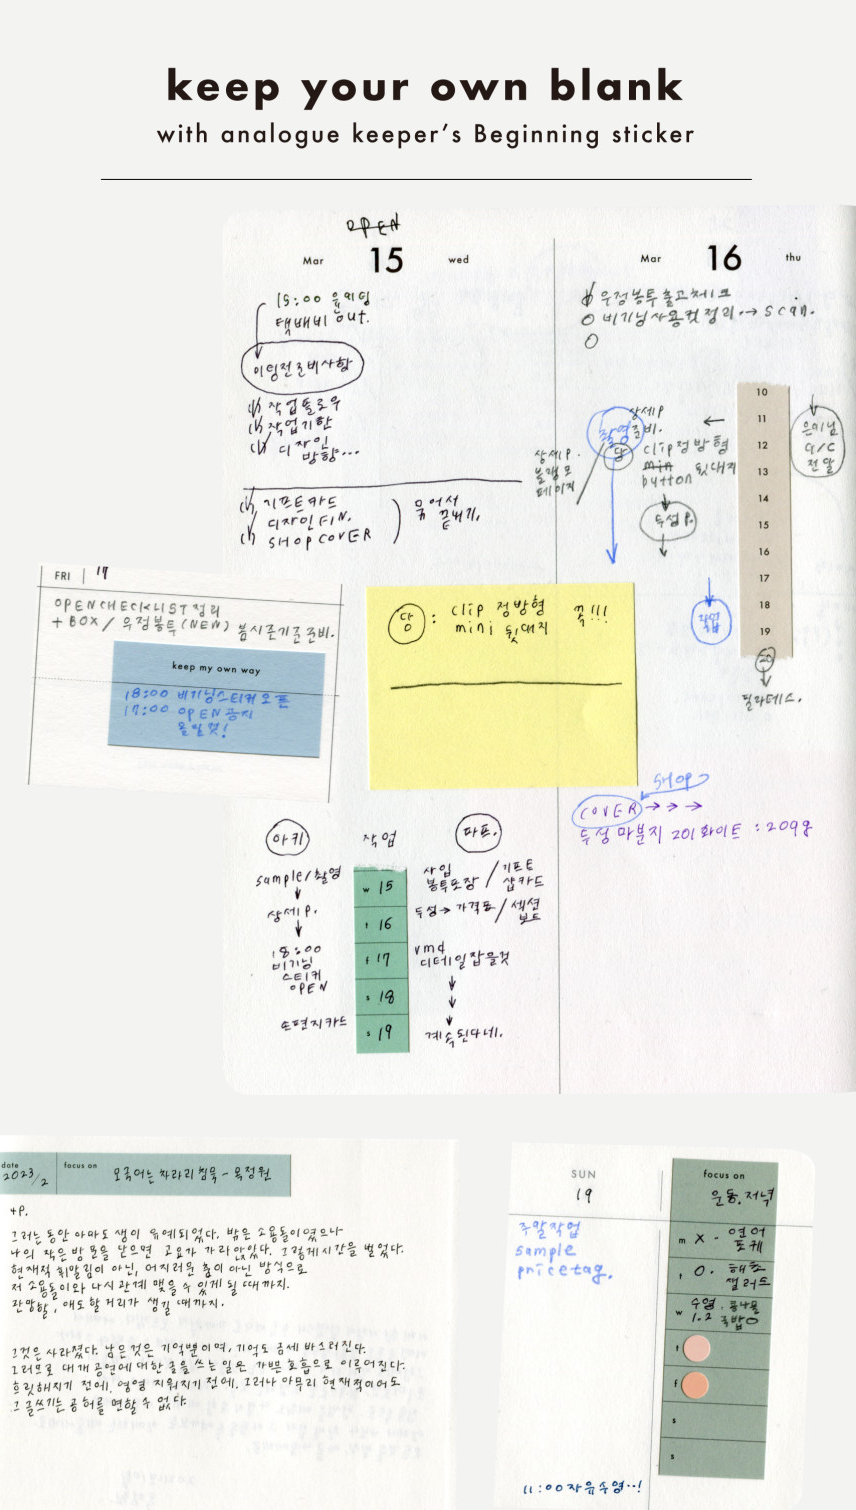 keep your own blank
with analogue keeper's Beginning sticker
OPEN
Mar 15 wed
15:00 유미팅
택배비 out.
미팅전준비사항
작업플로우
작업기한
디자인
방향...
기프트카드
디자인FIN.
SHOP COVER
묶어서
끝내기.
Mar 16 thu
우정봉투출고체크
비기닝사용컷정리 → scan.
10
11
12
13
14
15
16
17
18
19
20
필라테스.
은미님
전달
상세P
준비.
촬영
당
상세P.
페이지
clip정방형
min 뒷대지
button
두성P.
작업
FRI 17
OPENCHECKLIST정리
+ BOX / 우정봉투(NEW) 봄시즌기준준비.
keep my own way
18:00 비기닝스티커오픈
17:00 OPEN공지
올릴것!
당 : clip 정방형 꼭!!!
mini 뒷대지
SHOP
COVER → → →
두성 마분지 201화이트 : 209g
아키 작업 파프.
sample/촬영
상세P.
18:00
비기닝
스티커
OPEN
손편지카드
w 15
t 16
f 17
s 18
s 19
사입 / 기프트
봉투포장 / 샵카드
두성 → 가격표 / 섹션
보드
vmd
디테일잡을것
계속된다네.
date focus on
2023/2 모국어는 차라리 침묵 - 목정원
+P.
그러는 동안 아마도 생이 유예되었다. 밖은 소용돌이였으나
나의 작은 방 문을 닫으면 고요가 가라앉았다. 그렇게 시간을 벌었다.
현재적 휘말림이 아닌, 어지러운 춤이 아닌 방식으로
저 소용돌이와 다시 관계 맺을 수 있게 될 때까지.
관망할, 애도할 거리가 생길 때까지.
그것은 사라졌다. 남은 것은 기억뿐이며, 기억도 금세 바스러진다.
그러므로 대개 공연에 대한 글을 쓰는 일은 가쁜 호흡으로 이루어진다.
흐릿해지기 전에, 영영 지워지기 전에. 그러나 아무리 현재적이어도
그 글쓰기는 공허를 면할 수 없다.
SUN
19
주말작업
sample
pricetag.
focus on
운동. 저녁
m X - 연어
포케
t O. 해초
샐러드
w 수영. 콩나물
1.2 국밥O
t
f
s
s
11:00 자유수영..!